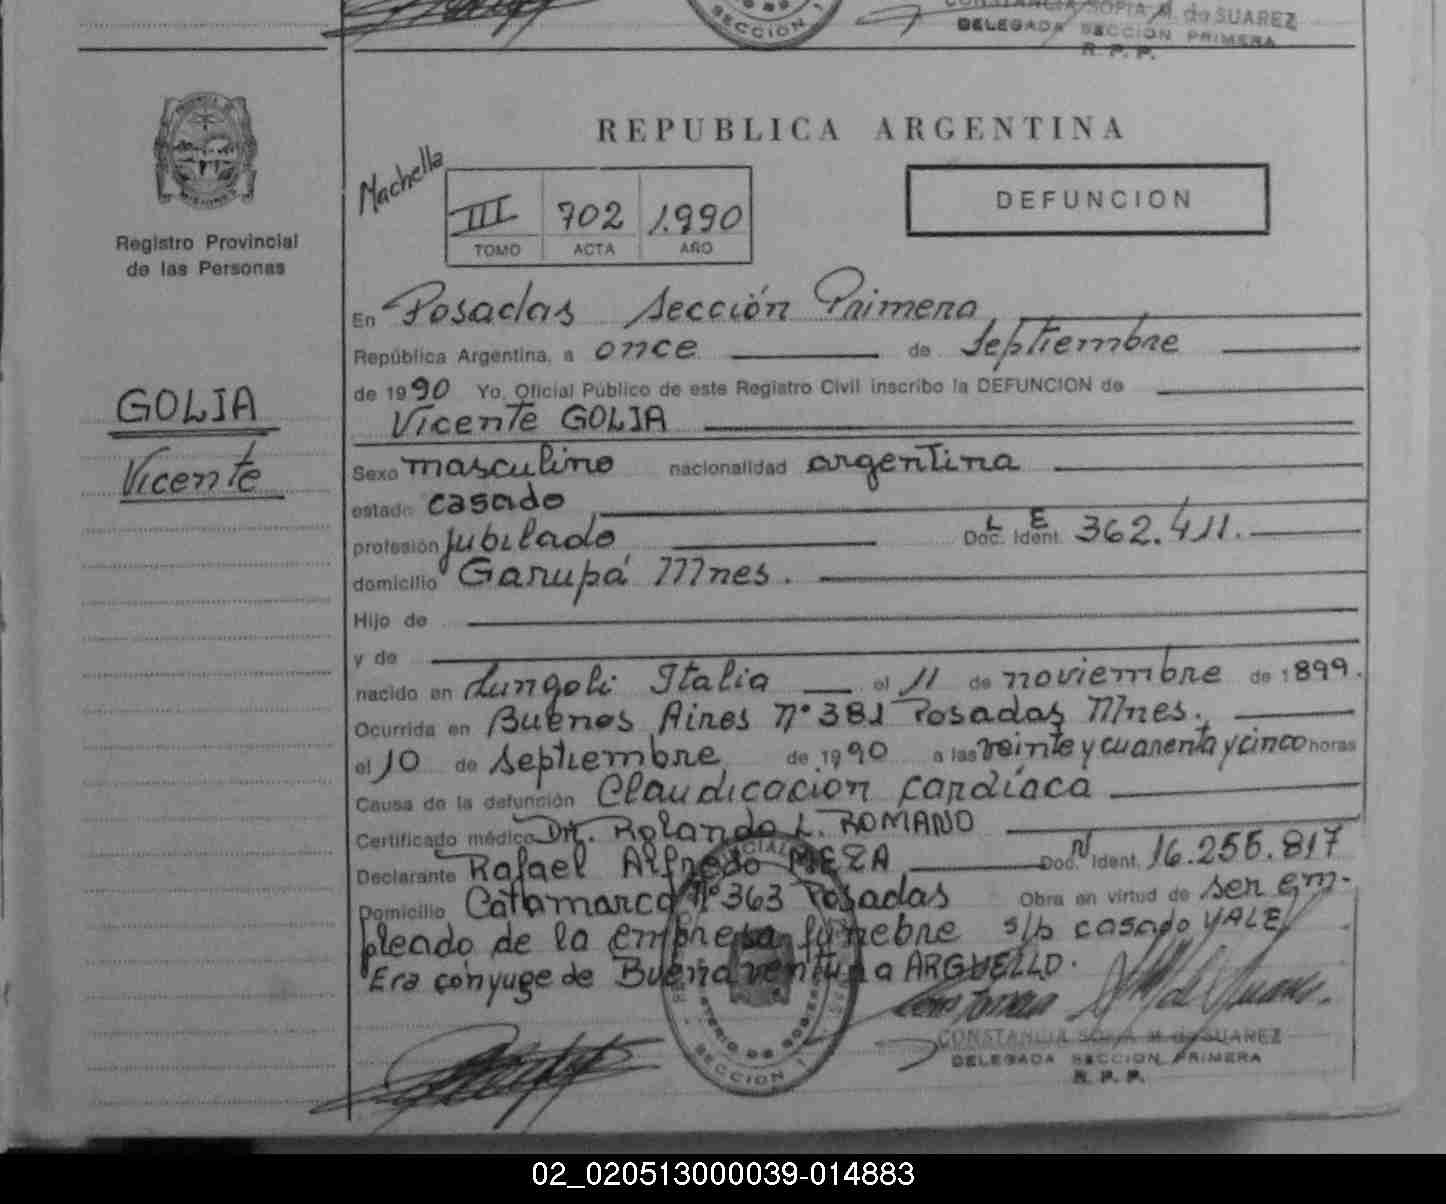 CONSTANCIA SOFIA M. de SUAREZ
DELEGADA SECCION PRIMERA
R. P. P.
SECCION 1
Registro Provincial
de las Personas
GOLIA
Vicente
REPUBLICA ARGENTINA
Machella
III 702 1.990
TOMO ACTA AÑO
DEFUNCION
En Posadas Sección Primera
República Argentina, a once de septiembre
de 1990 Yo, Oficial Público de este Registro Civil inscribo la DEFUNCION de
Vicente GOLIA
Sexo masculino nacionalidad argentina
estado casado
profesión jubilado Doc. Ident. L E 362.411.
domicilio Garupá Mnes.
Hijo de
y de
nacido en Lungoli Italia el 11 de noviembre de 1899.
Ocurrida en Buenos Aires Nº 381 Posadas Mnes.
el 10 de septiembre de 1990 a las veinte y cuarenta y cinco horas
Causa de la defunción Claudicación cardíaca
Certificado médico Dr. Rolando L. ROMANO
Declarante Rafael Alfredo MEZA Doc. Ident. N 16.255.817
Domicilio Catamarca Nº 363 Posadas Obra en virtud de ser em-
pleado de la empresa fúnebre s/b casado VALE
Era cónyuge de Buenaventura ARGUELLO.
CONSTANCIA SOFIA M. de SUAREZ
DELEGADA SECCION PRIMERA
R. P. P.
SECCION 1
02_020513000039-014883